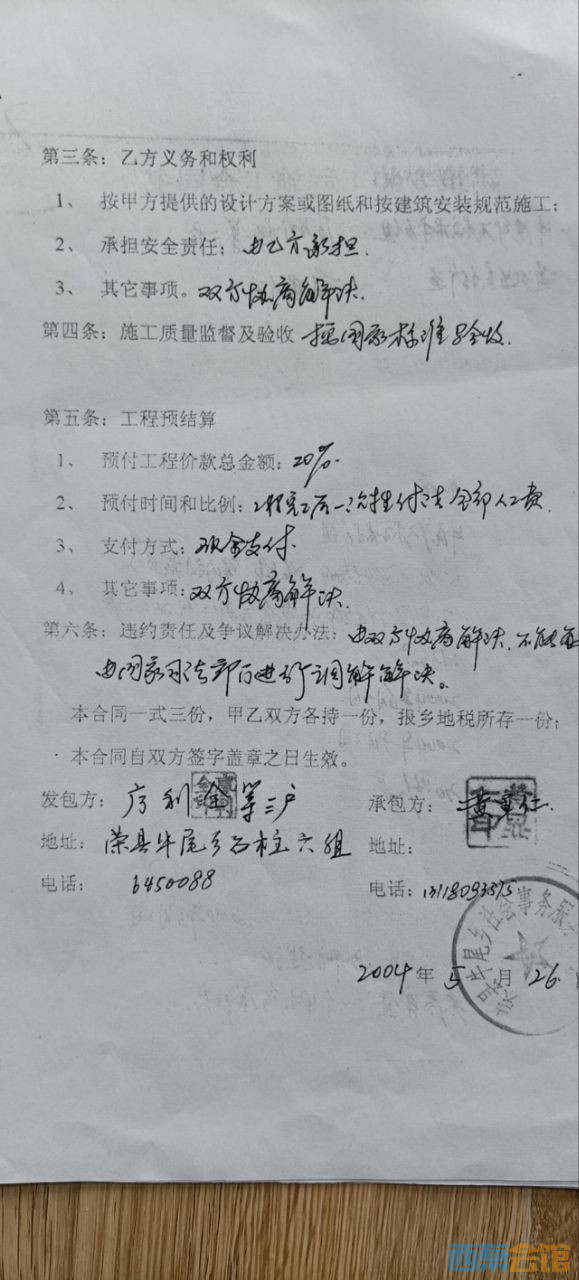 第三条：乙方义务和权利
1、 按甲方提供的设计方案或图纸和按建筑安装规范施工；
2、 承担安全责任：由乙方承担.
3、 其它事项。双方协商解决.
第四条：施工质量监督及验收 按国家标准验收.
第五条：工程预结算
1、 预付工程价款总金额：20%.
2、 预付时间和比例：工程完工后一次性付清全部人工费.
3、 支付方式：现金支付.
4、 其它事项：双方协商解决.
第六条：违约责任及争议解决办法：由双方协商解决.不能
由国家司法部门进行调解解决。
本合同一式三份，甲乙双方各持一份，报乡地税所存一份；
本合同自双方签字盖章之日生效。
发包方： 利金等三户
承包方：黄 仁.
地址：荣县牛尾乡石柱六组
地址：
电话：6450088
电话：13118093515
牛尾乡社会事务服
2004年5月26
西祠会馆